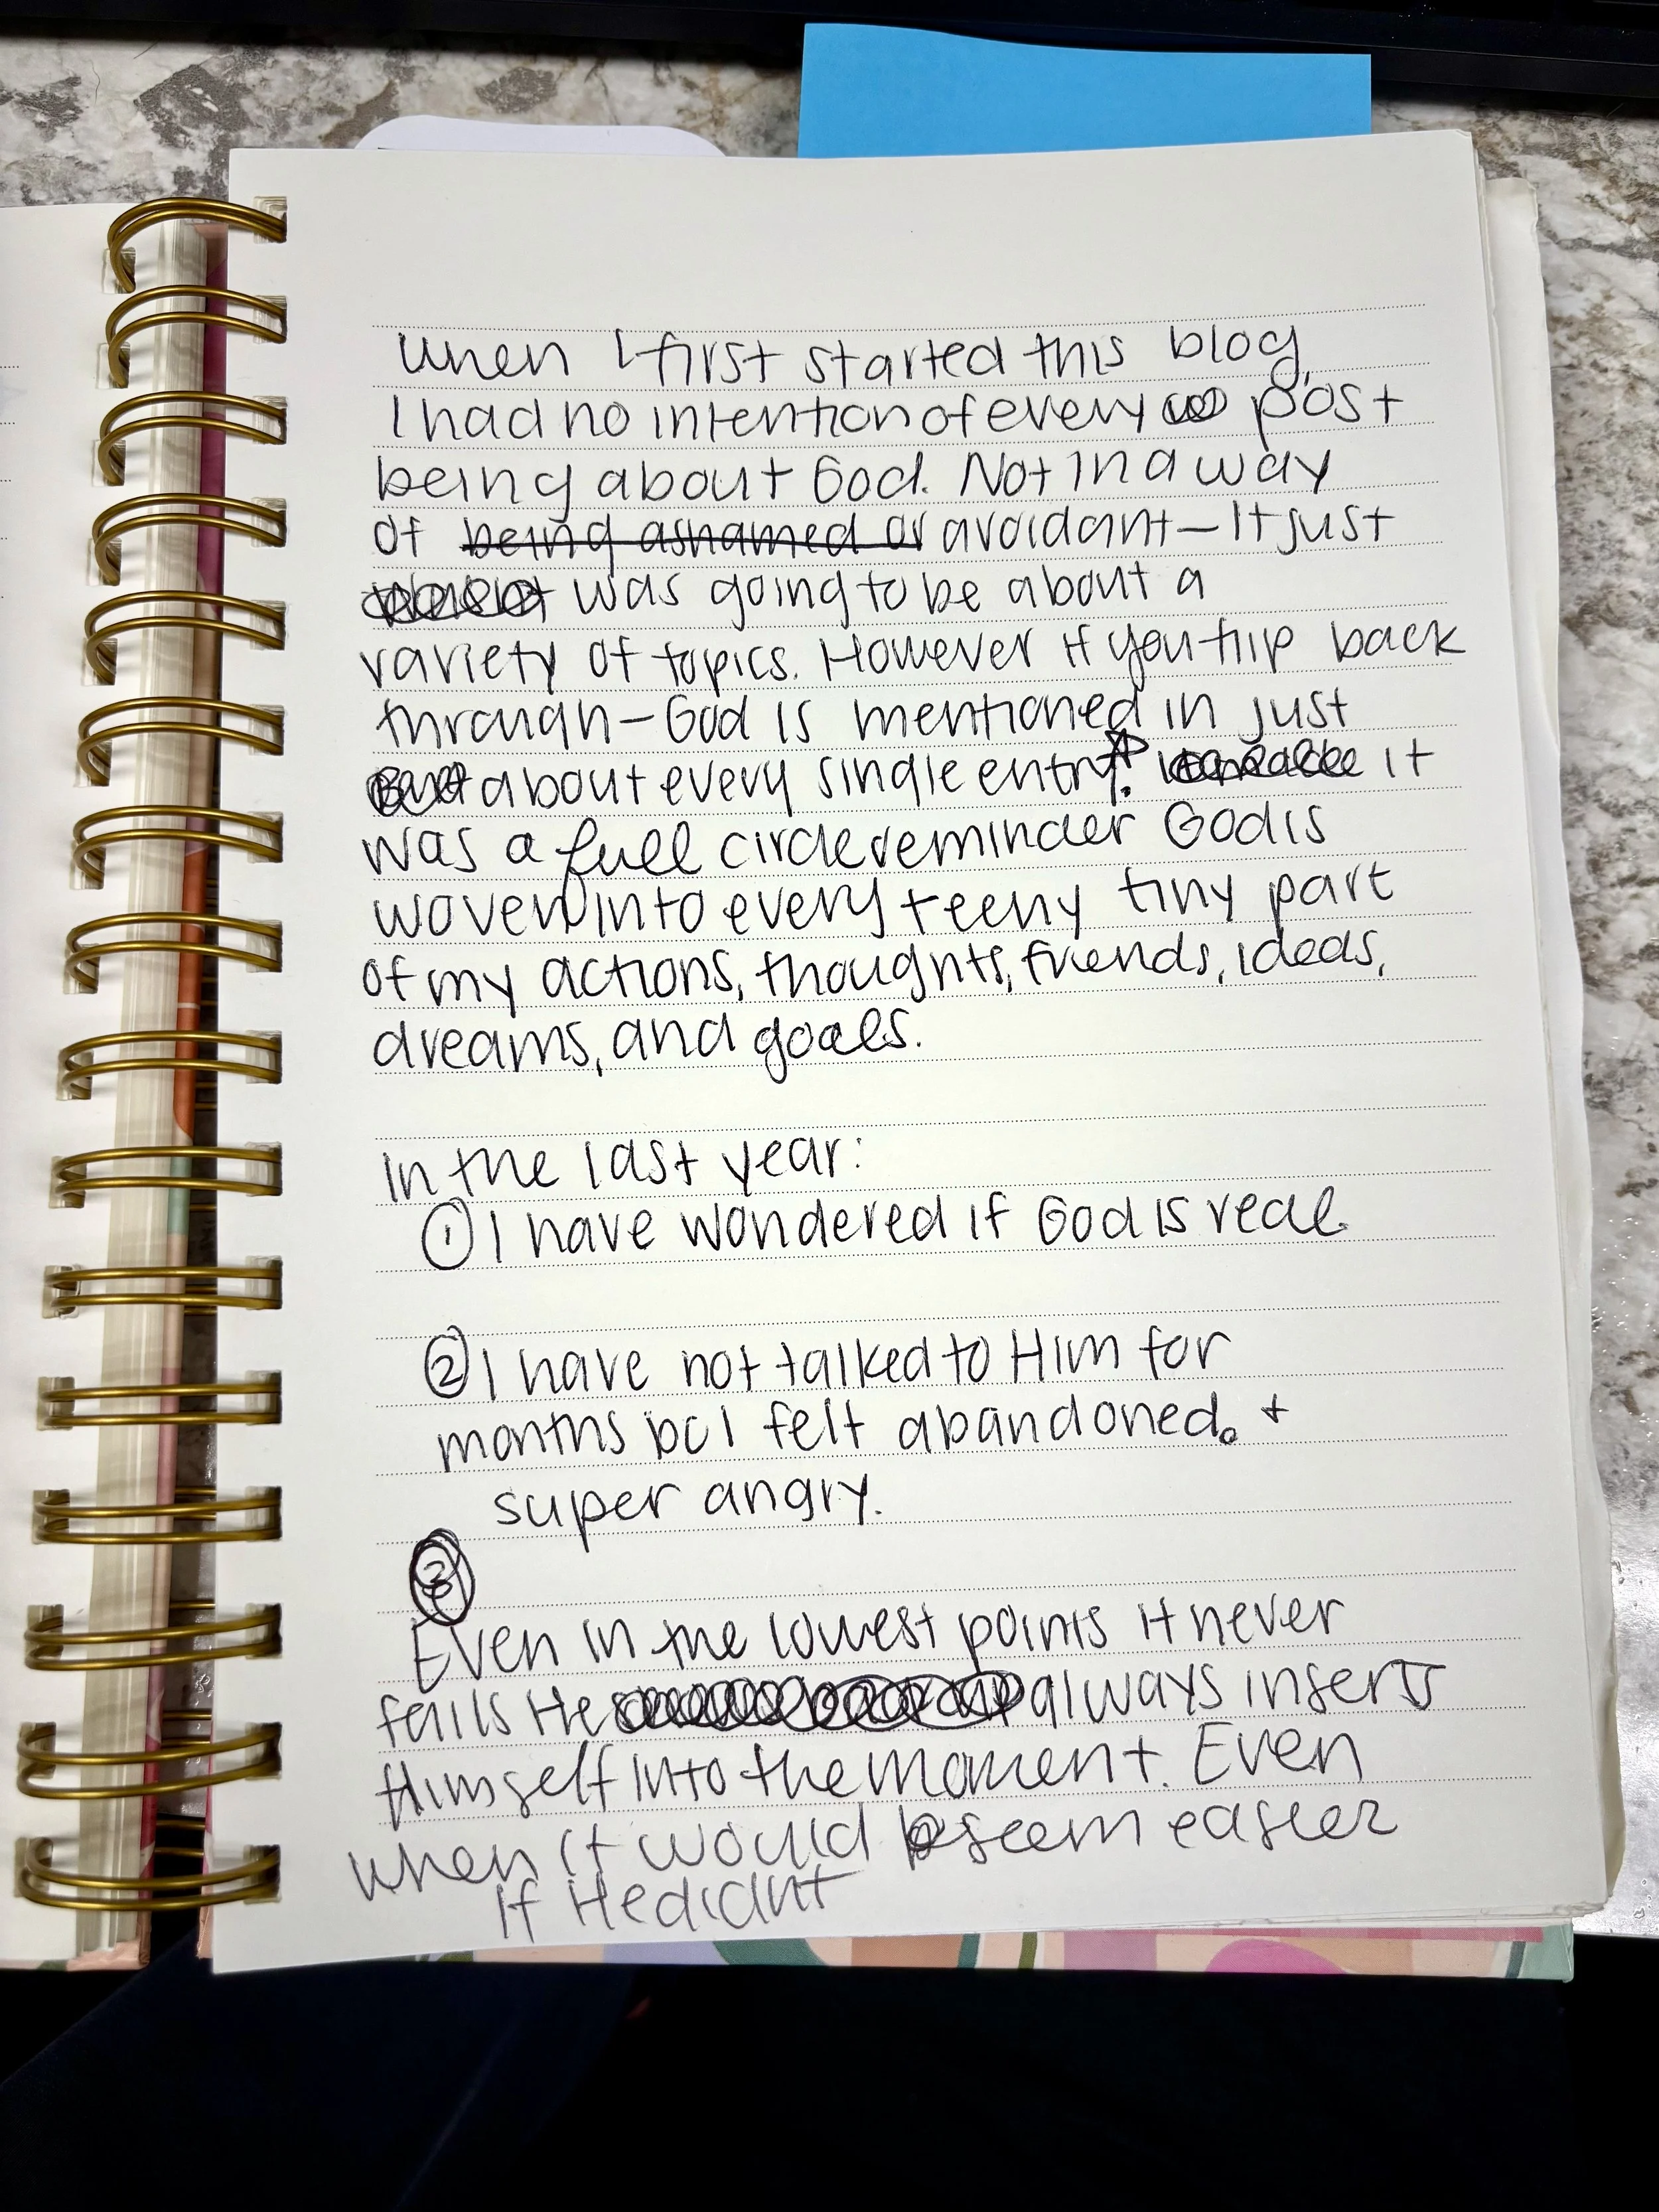 When I first started this blog,
I had no intention of every post
being about God. Not in a way
of being ashamed or avoidant — It just
was going to be about a
variety of topics. However if you flip back
through — God is mentioned in just
about every single entry. it
was a full circle reminder God is
woven into every teeny tiny part
of my actions, thoughts, friends, ideas,
dreams, and goals.
In the last year:
① I have wondered if God is real.
② I have not talked to Him for
months bc I felt abandoned. +
super angry.
③
Even in the lowest points it never
fails He always inserts
Himself into the moment. Even
when it would seem easier
if He didnt